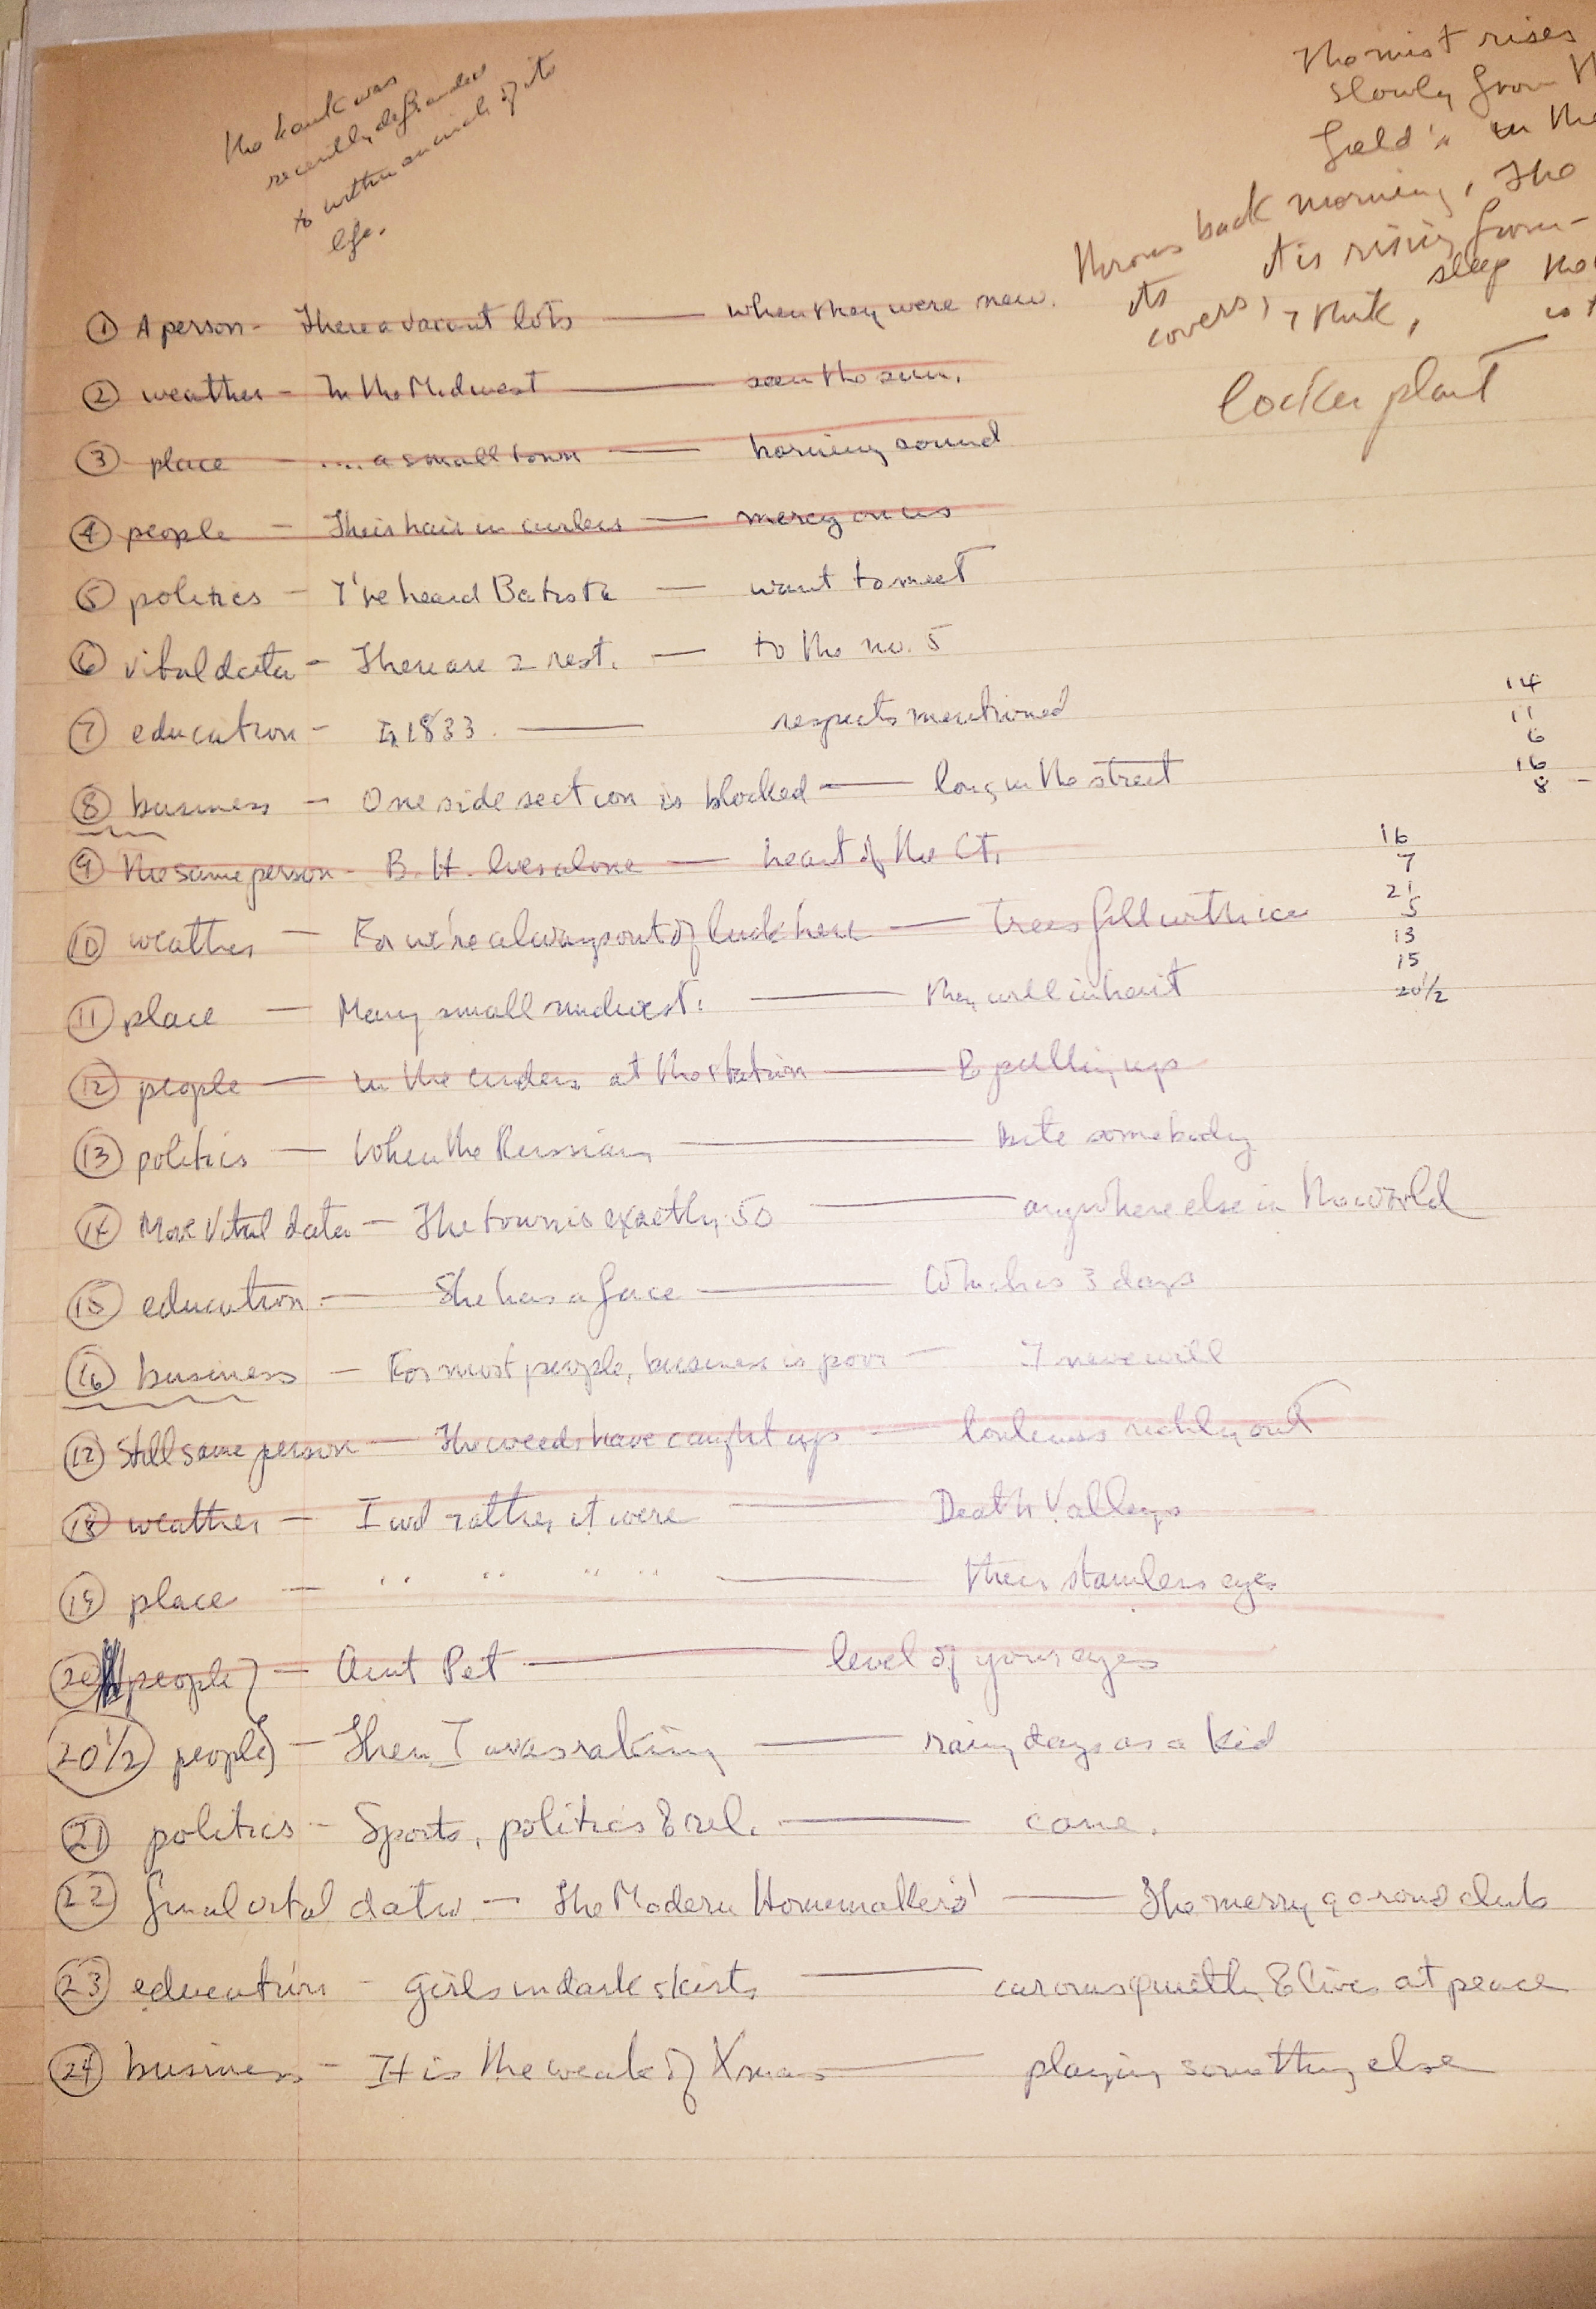 The bank was
recently defrauded
to within an inch of its
life.
The mist rises
slowly from
field's in the
morning, The
throws back it is rising from
its sleep
covers, I think,
locker plant
① A person - There a vacant lots — when they were new.
② weather - In the Midwest — seen the sun.
③ place - .... a small town — horning sound
④ people - Their hair in curlers — mercy on us
⑤ politics - I've heard Batista — want to meet
⑥ vital data - There are 2 rest. — to the no. 5
⑦ education - In 1833. — respects mentioned
⑧ business - One side section is blocked — long in the street
⑨ The same person - B. H. lives alone — heart of the Ct.
⑩ weather - For we're always out of luck here — trees fill with ice
⑪ place - Many small midwest. — they will inherit
⑫ people - in the cinders at the station — & pulling up
⑬ politics - When the Russians — bite somebody
⑭ More Vital data - The town is exactly 50 — anywhere else in the world
⑮ education - She has a face — Which is 3 days
⑯ business - For most people, business is poor — I never will
⑰ Still same person - The weeds have caught up — outt
⑱ weather - I wd rather it were — Death Valleys
⑲ place - " " " " — their stainless eyes
⑳ people) - Aunt Pet — level of your eyes
20 1/2 people) - Then I was raking — rainy days as a kid
㉑ politics - Sports, politics & rel. — cane.
㉒ final vital data - The Modern Homemakers' — The merry go round club
㉓ education - girls in dark skirts — & lives at peace
㉔ business - It is the week of Xmas — playing something else
14
11
6
16
8 -
16
7
21
5
13
15
20 1/2